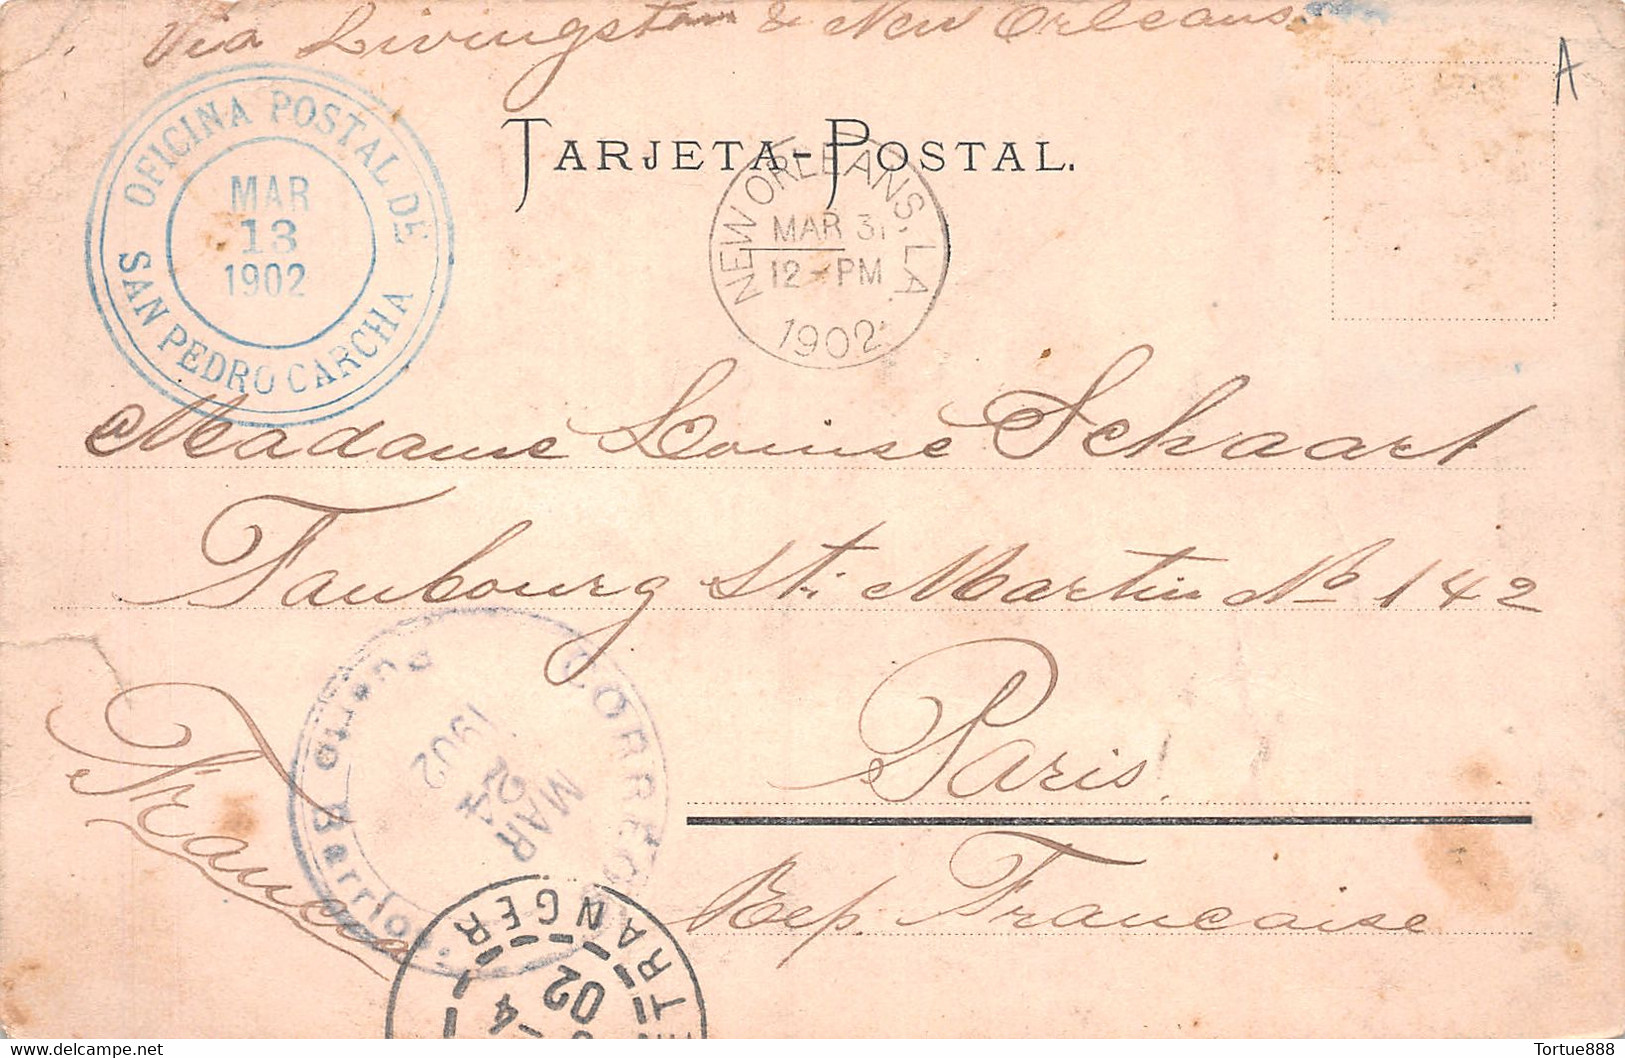 Via Livingston & New Orleans.
A
TARJETA-POSTAL.
OFICINA POSTAL DE
SAN PEDRO CARCHA
MAR
13
1902
NEW ORLEANS, LA
MAR 31
12-PM
1902
Madame Louise Schaart
Faubourg St. Martin No 142
Paris.
Rep. Francaise
Francia
CORREOS
Puerto Barrios.
MAR
24
1902
ETRANGER
4
02
Tortue888